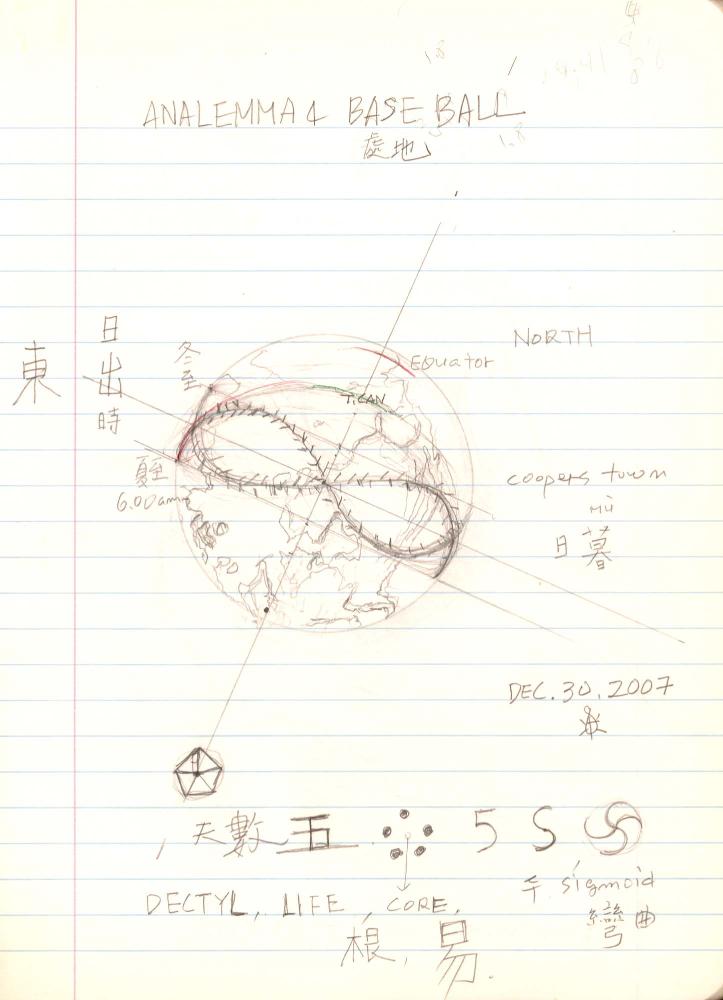 ANALEMMA & BASE BALL
處地
NORTH
Equator
TiCAN
東
日出時
冬至
夏至
6.00am
coopers town
mù
日暮
DEC. 30, 2007
, 天數 五 5 S
sigmoid
彎曲
DECTYL, LIFE, CORE,
根, 易.